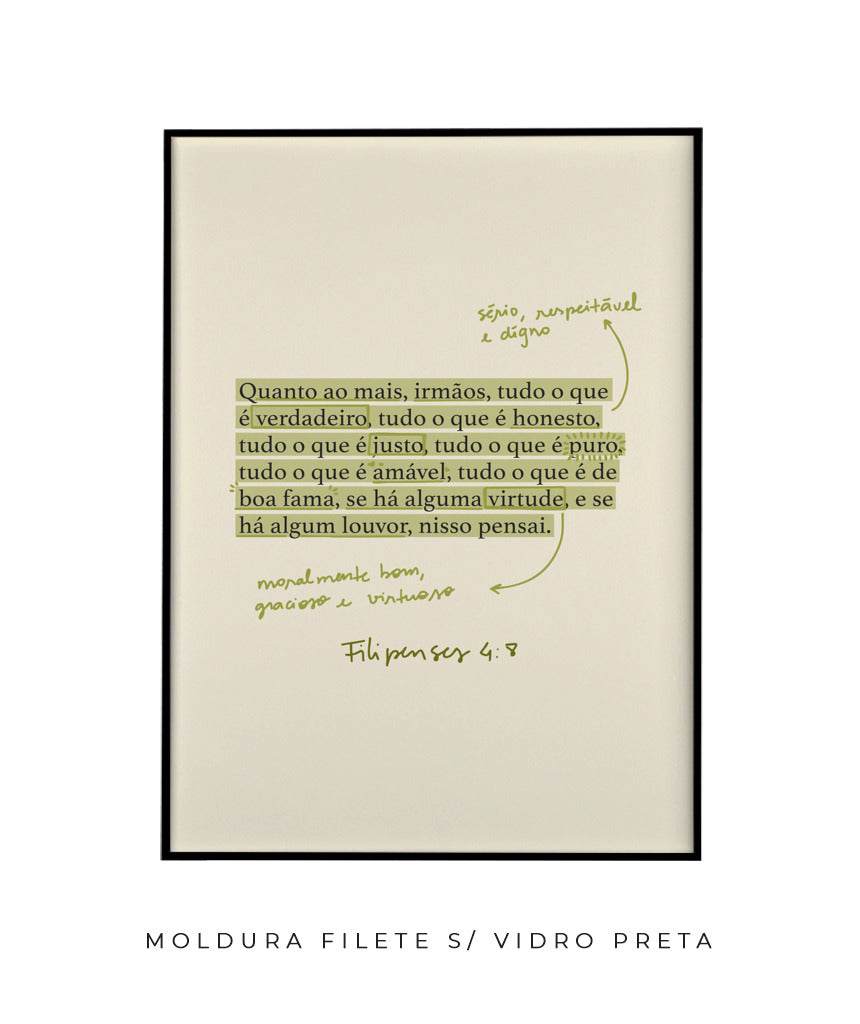 sério, respeitável
e digno
Quanto ao mais, irmãos, tudo o que
é verdadeiro, tudo o que é honesto,
tudo o que é justo, tudo o que é puro,
tudo o que é amável, tudo o que é de
boa fama, se há alguma virtude, e se
há algum louvor, nisso pensai.
moralmente bom,
gracioso e virtuoso
Filipenses 4:8
MOLDURA FILETE S/ VIDRO PRETA